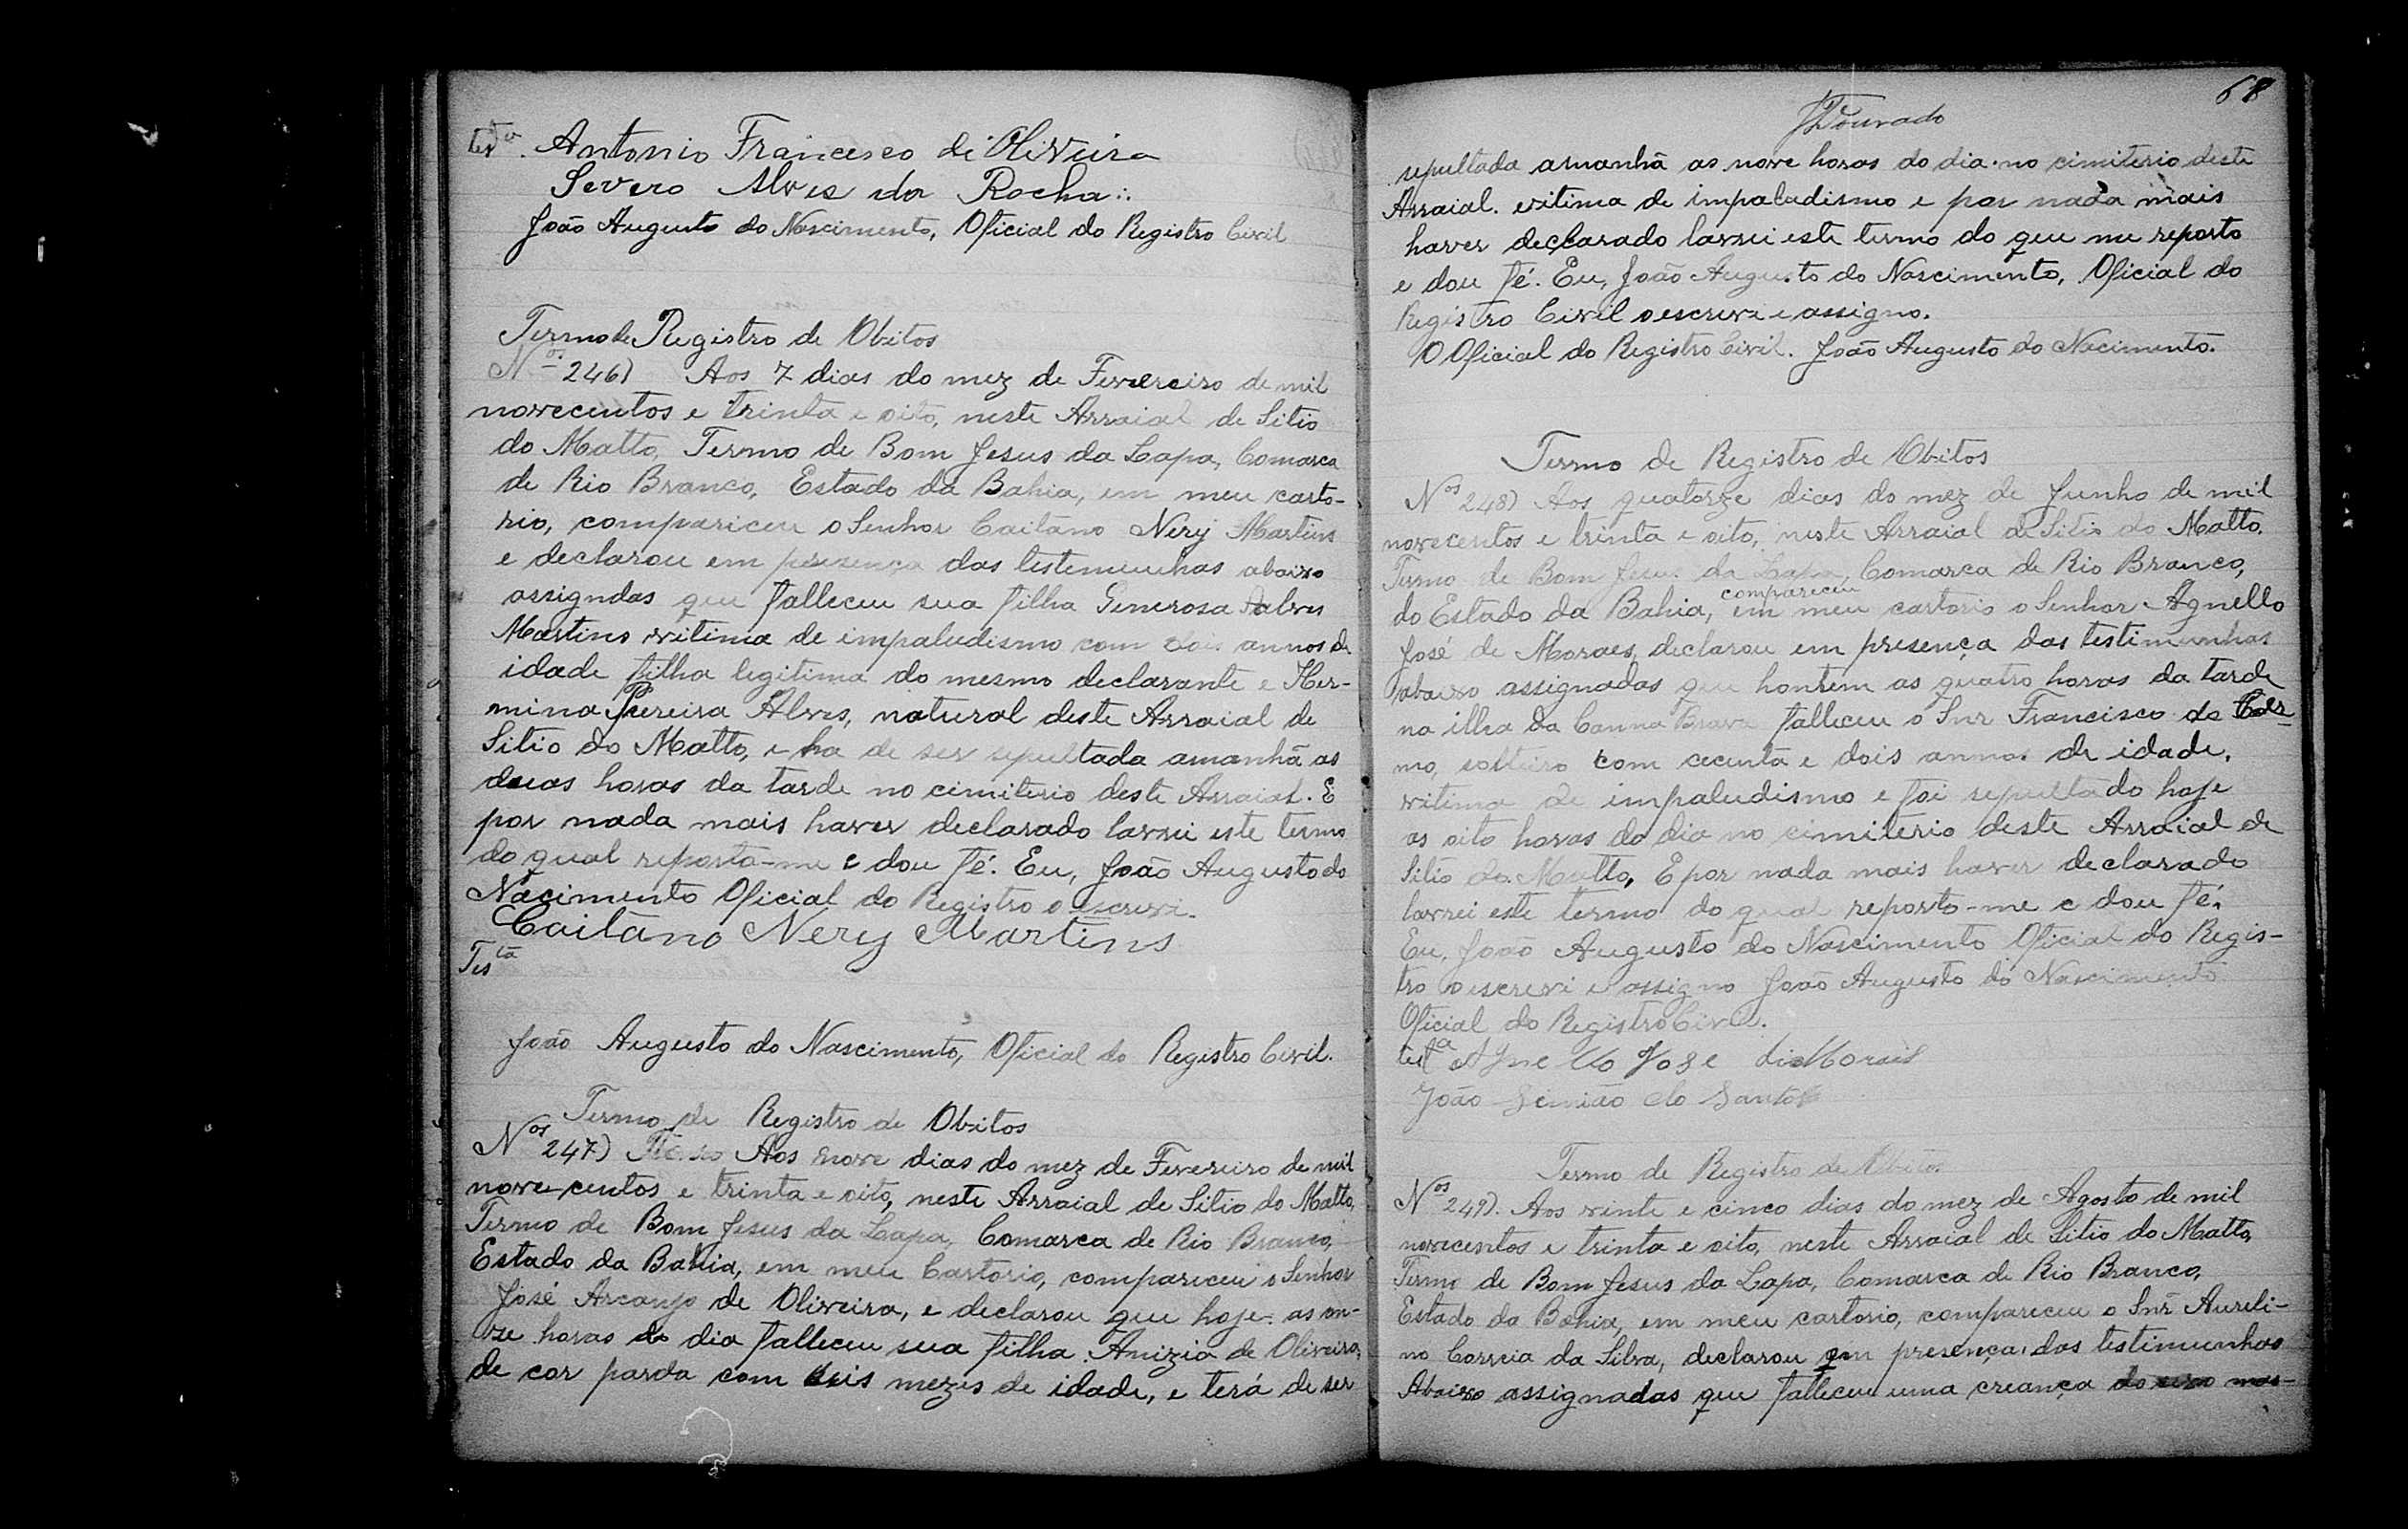 testa. Antonio Francisco de Oliveira
Severo Alves da Rocha
João Augusto do Nascimento, Oficial do Registro Civil
Termo de Registro de Obitos
Nos 246) Aos 7 dias do mez de Fevereiro de mil
novecentos e trinta e oito, neste Arraial de Sitio
do Matto, Termo de Bom Jesus da Lapa, Comarca
de Rio Branco, Estado da Bahia, em meu carto-
rio, compariceu o Senhor Caitano Nery Martins
e declarou em presença das testemunhas abaixo
assigndas que falleceu sua filha Generosa Alves
Martins vitima de impaludismo com dois annos de
idade filha legitima do mesmo declarante e Her-
mina Pereira Alves, natural deste Arraial de
Sitio do Matto, e ha de ser sepultada amanhã as
duas horas da tarde no cimiterio deste Arraial. E
por nada mais haver declarado lavrei este termo
do qual reporto-me e dou fé. Eu, João Augusto do
Nacimento Oficial do Registro o escrevi.
Caitano Nery Martins
Testa
João Augusto do Nascimento, Oficial do Registro Civil.
Termo de Registro de Obitos
Nos 247) Aos nove dias do mez de Fevereiro de mil
nove centos e trinta e oito, neste Arraial de Sitio do Matto,
Termo de Bom Jesus da Lapa, Comarca de Rio Branco,
Estado da Bahia, em meu Cartorio, compariceu o Senhor
José Arcanjo de Oliveira, e declarou que hoje as on-
ze horas do dia falleceu sua filha Anizia de Oliveira,
de cor parda com seis mezes de idade, e terá de ser
68
JDourado
sepultada amanhã as nove horas do dia no cimiterio deste
Arraial. vitima de impaludismo e por nada mais
haver declarado lavrei este termo do que me reporto
e dou fé. Eu, João Augusto do Nascimento, Oficial do
Registro Civil o escrevi e assigno.
O Oficial do Registro Civil. João Augusto do Nacimento.
Termo de Registro de Obitos
Nos 248) Aos quatorze dias do mez de Junho de mil
novecentos e trinta e oito, neste Arraial de Sitio do Matto.
Termo de Bom Jesus da Lapa, Comarca de Rio Branco,
compareceu
do Estado da Bahia, em meu cartorio o Senhor Agnello
José de Moraes, declarou em presença das testimunhas
abaixo assignadas que hontem as quatro horas da tarde
na ilha da Canna Brava falleceu o Snr Francisco do Car-
mo, solteiro com cecenta e dois annos de idade,
vitima de impaludismo e foi sepultado hoje
as oito horas do dia no cimiterio deste Arraial de
Sitio do Matto, E por nada mais haver declarado
lavrei este termo do qual reporto-me e dou fé.
Eu, João Augusto do Nascimento Oficial do Regis-
tro o escrevi e assigno João Augusto do Nascimento
Oficial do Registro Civil.
testa Agnello Jose di Morais
João Simião do Santos
Termo de Registro de Obitos
Nos 249). Aos vinte e cinco dias do mez de Agosto de mil
novecentos e trinta e oito, neste Arraial de Sitio do Matto,
Termo de Bom Jesus da Lapa, Comarca de Rio Branco,
Estado da Bahia, em meu cartorio, compareceu o Snr Aureli-
no Correia da Silva, declarou em presença das testimunhas
Abaixo assignadas que falleceu uma creança do sexo mas-